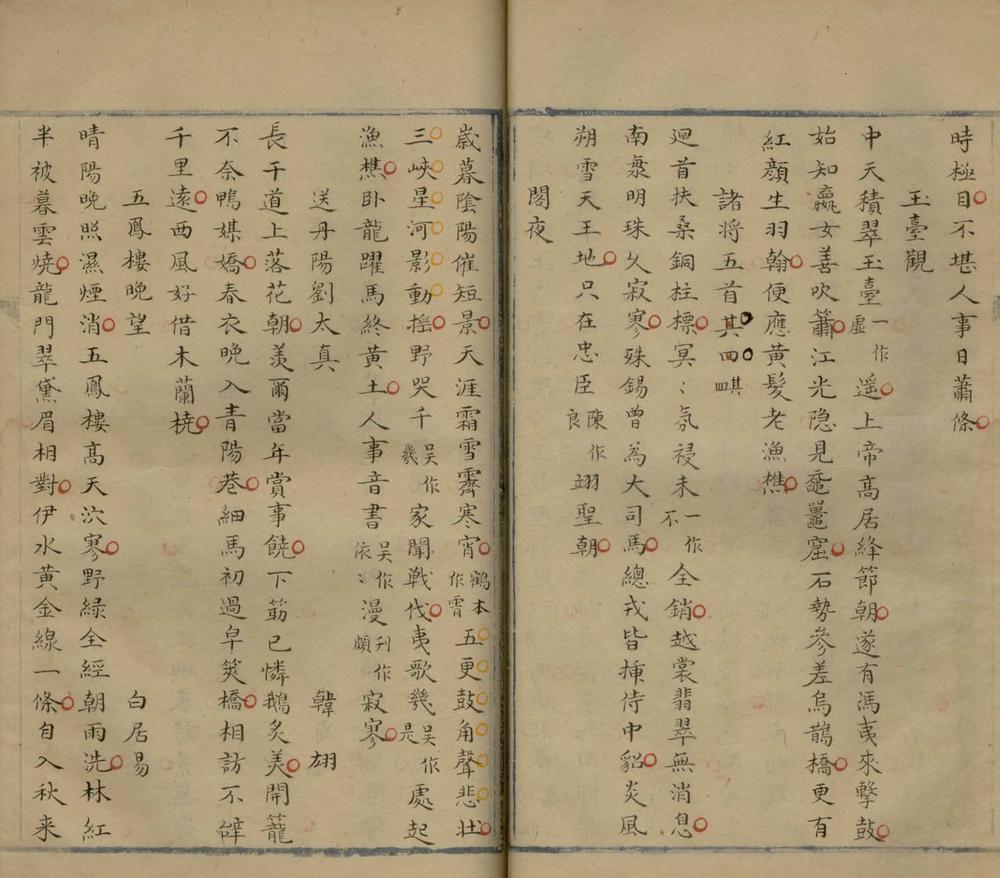 時極目不堪人事日蕭條
玉臺觀
中天積翠玉臺一作虛遥上帝高居絳節朝遂有馮夷來擊鼓
始知嬴女善吹簫江光隐見黿鼉窟石勢參差烏鵲橋更有
紅顔生羽翰便應黄髮老漁樵
諸将五首其四
廻首扶桑銅柱標冥〻氛祲未一作不全銷越裳翡翠無消息
南海明珠久寂寥殊錫曾為大司馬總戎皆揷侍中貂炎風
朔雪天王地只在忠臣陳作良翊聖朝
閣夜
歲暮陰陽催短景天涯霜雪霽寒宵鶴本作霄五更鼓角聲悲壮
三峽星河影動摇野哭千吴作幾家聞戰伐夷歌幾吴作是處起
漁樵卧龍躍馬終黄土人事音書吴作依〻漫刊作頗寂寥
送丹陽劉太真 韓翃
長干道上落花朝羡爾當年賞事饒下筯已憐鵝炙美開籠
不奈鴨媒嬌春衣晚入青陽巷細馬初過皁筴橋相訪不辭
千里遠西風好借木蘭橈
五鳳樓晚望 白居易
晴陽晚照濕煙消五鳳樓髙天泬寥野緑全經朝雨洗林紅
半被暮雲燒龍門翠黛眉相對伊水黄金線一條自入秋来